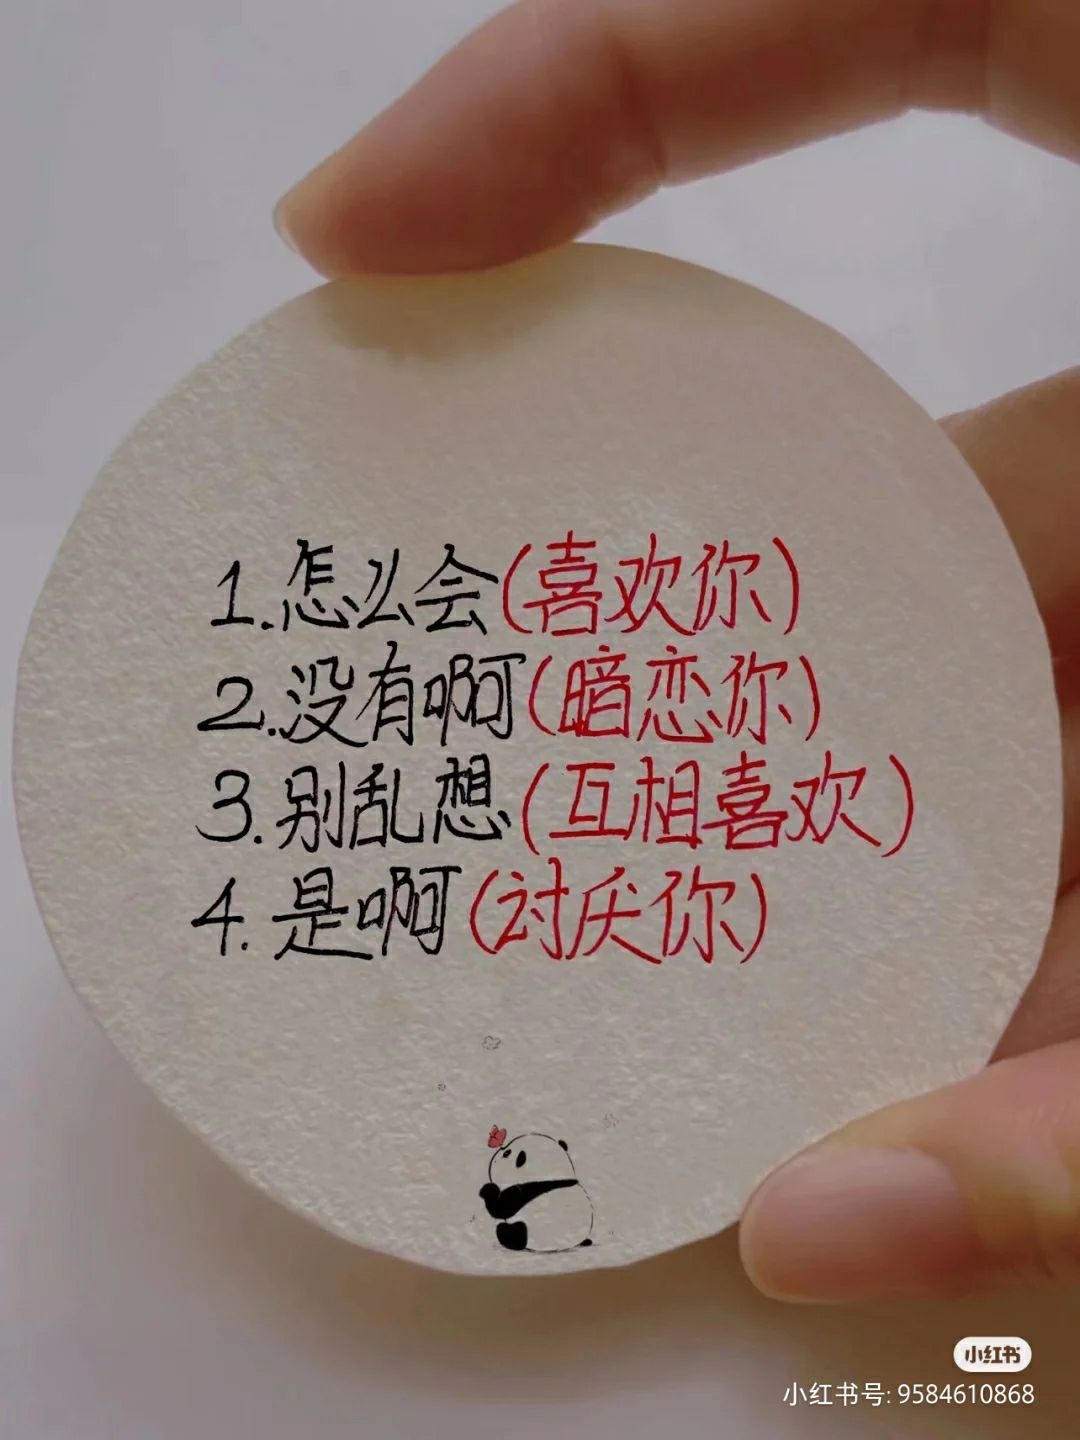 1.怎么会(喜欢你)
2.没有啊(暗恋你)
3.别乱想(互相喜欢)
4.是啊(讨厌你)
小红书
小红书号: 9584610868